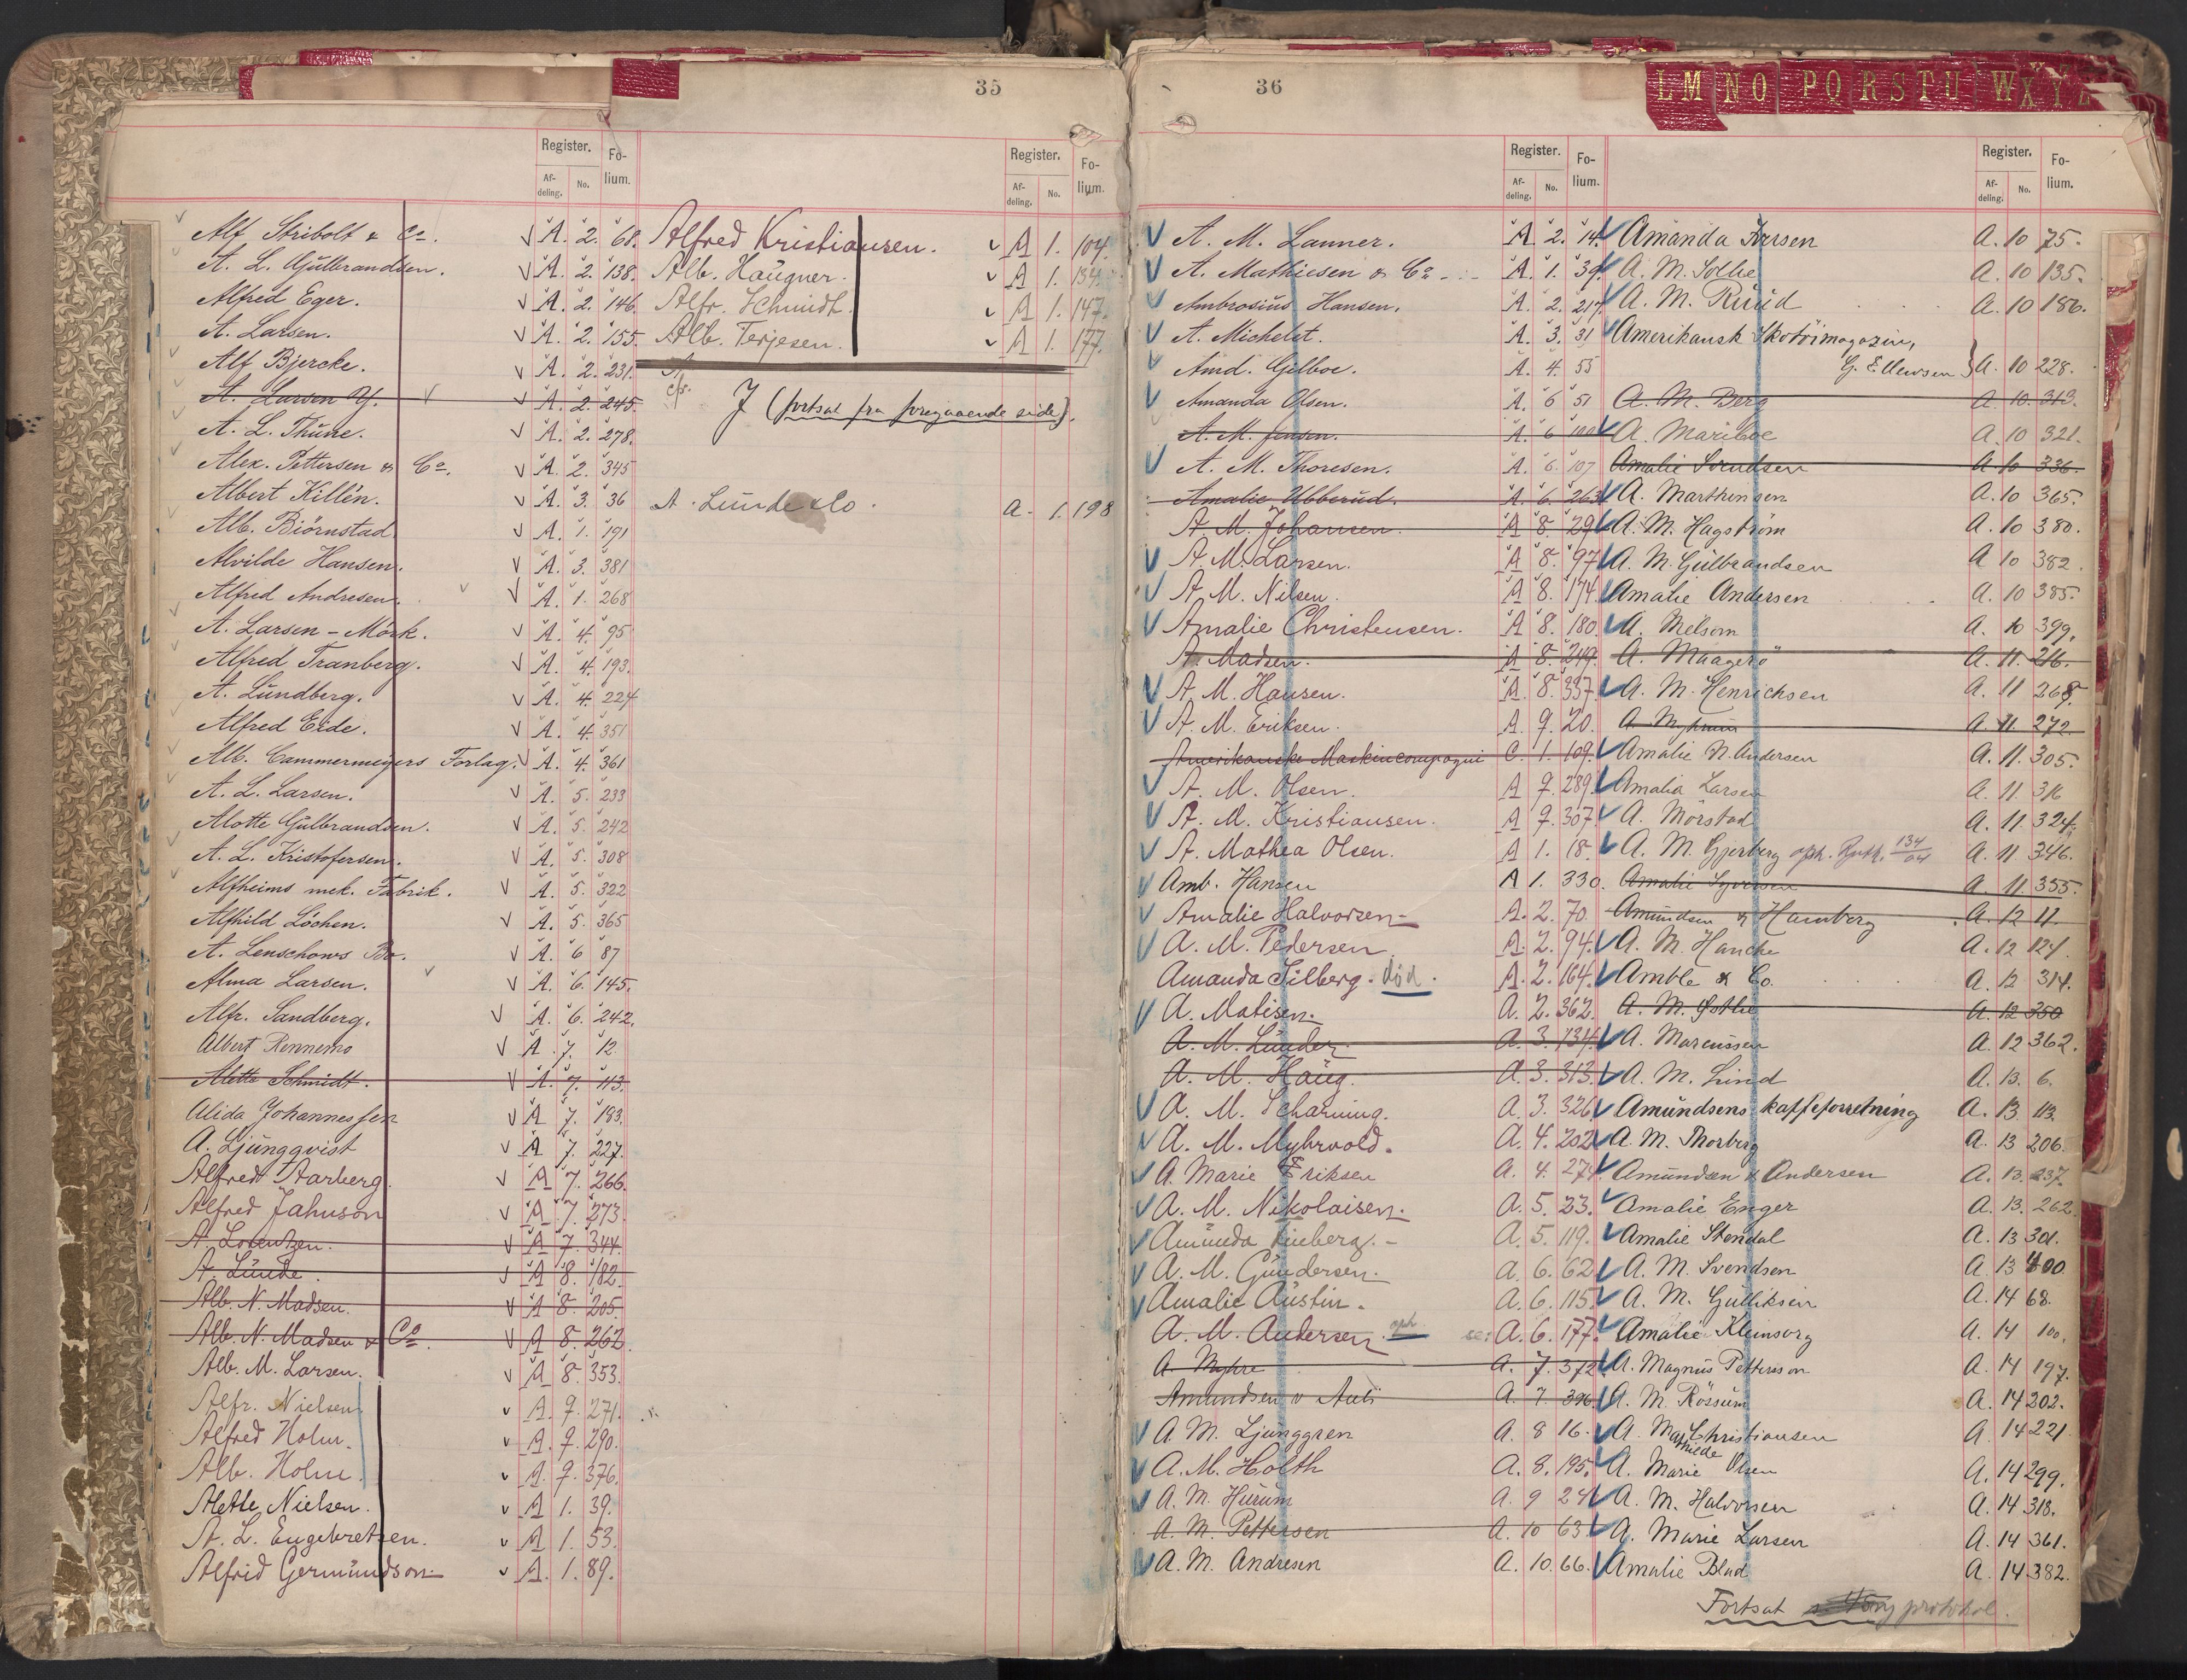 35
Register.
Fo-
lium.
Af-
deling.
No.
Alf Stribolt & Co. A. 2. 68.
A. L. Gulbrandsen. A. 2. 138.
Alfred Eger. A. 2. 146.
A. Larsen. A. 2. 155.
Alf Bjercke. A. 2. 231.
A. Larsen Y. A. 2. 245.
A. L. Thune. A. 2. 278.
Alex. Pettersen & Co. A. 2. 345
Albert Killén. A. 3. 36
Alb. Biörnstad A. 1. 191
Alvilde Hansen. A. 3. 381
Alfred Andresen. A. 1. 268
A. Larsen-Mörk. A. 4. 95
Alfred Tranberg. A. 4. 193.
A. Lundberg. A. 4. 224
Alfred Eide. A. 4. 351
Alb. Cammermeyers Forlag. A. 4. 361
A. L. Larsen. A. 5. 233
Alotte Gulbrandsen. A. 5. 242
A. L. Kristofersen. A. 5. 308
Alfheims mek. Fabrik. A. 5. 322
Alfhild Löchen. A. 5. 365
A. Lenschows Bo. A. 6 87
Alma Larsen. A. 6. 145.
Alfr. Sandberg. A. 6. 242.
Albert Rennemo A. 7. 12.
Alette Schmidt. A. 7. 113.
Alida Johannessen A. 7. 193.
A. Ljungqvist A. 7. 227.
Alfred Aarberg. A. 7. 266.
Alfred Jahnson A. 7. 273
A. Lorentzen. A. 7. 344.
A. Lunde. A. 8. 182.
Alb. N. Madsen. A. 8. 205.
Alb. N. Madsen & Co. A. 8. 262.
Alb. M. Larsen. A. 8. 353.
Alfr. Nielsen A. 9. 271.
Alfred Holm. A. 9. 290.
Alb. Holm. A. 9. 376.
Alette Nielsen. A. 1. 39.
A. L. Engebretsen. A. 1. 53.
Alfrid Germundson. A. 1. 89.
Register.
Fo-
lium.
Af-
deling.
No.
Alfred Kristiansen. A 1. 104.
Alb. Haugner. A 1. 134.
Alfr. Schmidt. A 1. 147.
Alb. Terjesen. A 1. 177.
cfr. J (fortsat fra foregaaende side).
A. Lunde & Co. A. 1. 198
36
L M N O P Q R S T U W X Y Z
Register.
Fo-
lium.
Af-
deling.
No.
A. M. Lanner. A. 2. 14.
A. Mathiesen & Co. A. 1. 39
Ambrosius Hansen. A. 2. 217.
A. Michelet. A. 3. 31
Amd. Gilboe. A. 4. 55
Amanda Olsen. A. 6 51
A. M. Jensen. A. 6 100
A. M. Thoresen. A. 6. 107
Amalie Ubberud. A. 6. 263
A. M. Johansen. A 8. 29
A. M. Larsen. A 8. 97
A. M. Nilsen. A 8. 174.
Amalie Christensen. A 8. 180.
A. Madsen. A 8. 249.
A. M. Hansen. A. 8. 337.
A. M. Eriksen. A 9. 20.
Amerikanske Maskincompagni C. 1. 109.
A. M. Olsen. A 9. 289.
A. M. Kristiansen. A 9. 307
A. Mathea Olsen. A 1. 18.
Amb. Hansen A 1. 330.
Amalie Halvorsen A. 2. 70.
A. M. Pedersen A. 2. 94.
Amanda Silberg. död. A. 2. 164.
A. Matisen. A. 2. 362.
A. M. Lunder. A. 3. 134.
A. M. Haug. A. 3. 313.
A. M. Scharning. A. 3. 326
A. M. Myhrvold. A. 4. 202
A. Marie Eriksen A. 4. 274.
A. M. Nikolaisen. A. 5. 23.
Amunda Lieberg. A. 5. 119.
A. M. Gundersen. A. 6. 62
Amalie Austin. A. 6. 115.
A. M. Andersen oph. A. 6. 177.
A. Myhre A. 7. 372
Amundsen & Auli A. 7. 396.
A. M. Ljunggren A. 8 16.
A. M. Holth A. 8. 195.
A. M. Hurum A. 9 241
A. M. Pettersen A. 10 63.
A. M. Andresen A. 10. 66.
Register.
Fo-
lium.
Af-
deling.
No.
Amanda Iversen A. 10 75.
A. M. Sollie A. 10 135.
A. M. Ruud A. 10 186.
Amerikansk Skotöimagazin,
G. Ellewsen A. 10 228.
A. M. Berg A. 10. 313.
A. Mariboe A. 10 321.
Amalie Svendsen A. 10 336.
A. Marthinsen A. 10 365.
A. M. Hagström A. 10 380.
A. M. Gulbrandsen A 10 382.
Amalie Andersen A. 10 385.
A. Melsom A. 10 399.
A. Maagerö A. 11. 216.
A. M. Henrichsen A. 11 268.
A. M. A. 11. 272
Amalie N. Andersen A. 11. 305.
Amalia Larsen A. 11 316
A. Mörstad A. 11. 324.
A. M. Gjerberg oph. 134/04 A. 11 346.
Amalie Syversen A. 11. 355.
Amundsen & Hamberg A. 12 11.
A. M. Hancke A. 12 121.
Amble & Co. A. 12 314.
A. M. Østlie A. 12 350
A. Marcussen A. 12 362.
A. M. Lind A. 13. 6.
Amundsens kaffeforretning A. 13 113.
A. M. Thorberg A. 13 206.
Amundsen & Andersen A. 13. 237.
Amalie Enger A. 13. 262.
Amalie Stendal A. 13 301.
A. M. Svendsen A 13 400
A. M. Gulliksen A. 14 68.
Amalie Kleinsorg A. 14 100.
A. Magnus Pettersson A. 14 197.
A. M. Rössum A. 14 202.
A. Mathilde Christiansen A. 14 221
A. Marie Olsen A. 14 299.
A. M. Halvorsen A. 14 318.
A. Marie Larsen A. 14 361.
Amalie Blad A. 14 382.
Fortsat protokol.